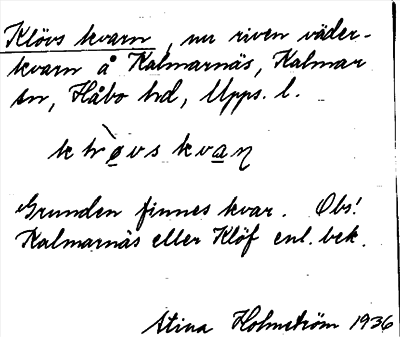 Klövs kvarn, nu riven väder-
kvarn å Kalmarnäs, Kalmar
sn, Håbo hd, Upps. l.
Grunden finnes kvar. Obs!
Kalmarnäs eller Klöf enl. bek.
Stina Holmström 1936